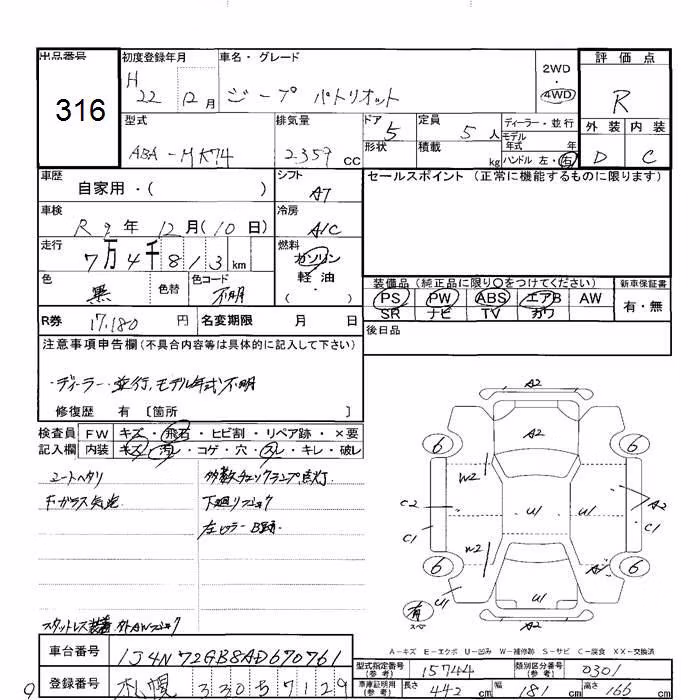 出品番号 初度登録年月 車名・グレード 評価点
316
H 22 12月 ジープ パトリオット 2WD ・ 4WD R
型式 排気量 ドア 5 定員 5人 ディーラー・並行 外装 内装
ABA-MK74 2.359 cc 形状 積載 kg モデル年式 年 ハンドル 左・右 D C
車歴 自家用・( ) シフト AT セールスポイント (正常に機能するものに限ります)
車検 R 9年 12月(10日) 冷房 A/C
走行 7万4千813km 燃料 ガソリン 軽油 ( )
色 黒 色替 色コード 不明
装備品(純正品に限り○をつけてください) 新車保証書
PS PW ABS エアB AW 有・無
SR ナビ TV カワ
R券 17,180円 名変期限 月 日 後日品
注意事項申告欄(不具合内容等は具体的に記入して下さい)
・ディーラー・並行、モデル年式不明
修復歴 有〔箇所 〕
検査員 FW キズ・飛石・ヒビ割・リペア跡・×要
記入欄 内装 キズ・汚レ・コゲ・穴・スレ・キレ・破レ
シートヘタリ 多数チェックランプ点灯
下廻りサビ
スタットレス装着
A2
A2
6 6
W2
C2 U1 U1 A2
C1 C1
W2
6 6
U1 U1
有 スペア A2
A-キズ E-エクボ U-凹み W-補修跡 S-サビ C-腐食 XX-交換済
車台番号 1J4N72GB8AD670761 型式指定番号(参考) 15744 類別区分番号(参考) 0301
登録番号 札幌 330 7129 車庫証明用(参考) 長さ 442cm 幅 181cm 高さ 166cm